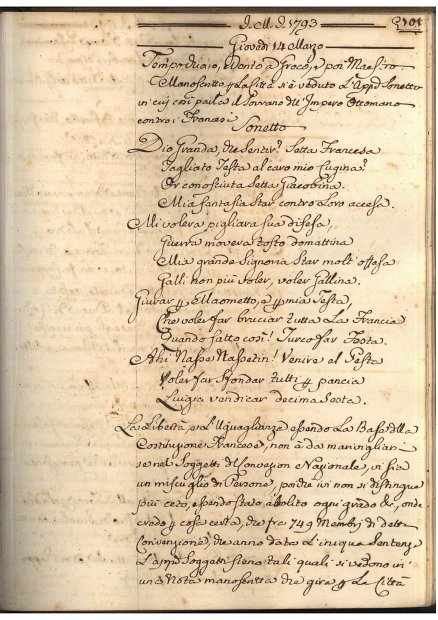 I. M. I. 1793
Giovedì 14 Marzo
Temp. ordinario, Vento a Greco, e poi Maestro.
Manoscritto ꝑ la Città si è veduto l'app.o Sonetto
in cui così parla il Sovrano dell'Impero Ottomano
contro i Francesi
Sonetto
Dio Granda, che sentir? Setta Francesa
Tagliato Testa al caro mio Cugina?
Or conosciuta Setta Giacobina.
Mia fantasia star contro loro accesa.
Mi volera pigliara sua difesa,
Guerra movera tosto domattina
Mia grande Signoria star molt'offesa
Galli non più voler, voler Gallina.
Giurar ꝑ Maometto, e ꝑ mia Testa,
Che voler far bruciar tutta la Francia
Quando fatto così! Turco far Festa.
Ahi Nasse Nassetin! Venire el Pesta
Voler far sfondar tutti ꝑ pancia
Luigia vendicar decima sesta.
La Libertà, e l'Uguaglianza essendo la Base della
Costituzione Francese, non è da maravigliarsi
se nel Soggetti di Convenzion Nazionale, vi sia
un miscuglio di Persone, poiche ivi non si distingue
più ceto, essendo stato abolito ogni grado &c, onde
credo ꝑ cosa certa, che fra 749 Membrj di detta
Convenzione, che anno data l'iniqua Sentenza
l'app.i Soggetti sieno tali quali si vedono in
una Nota manoscritta che gira ꝑ la Città